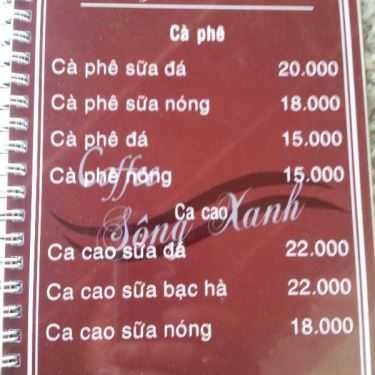 Cà phê
Cà phê sữa đá 20.000
Cà phê sữa nóng 18.000
Cà phê đá 15.000
Cà phê nóng 15.000
Coffee
Ca cao
Sông Xanh
Ca cao sữa đá 22.000
Ca cao sữa bạc hà 22.000
Ca cao sữa nóng 18.000